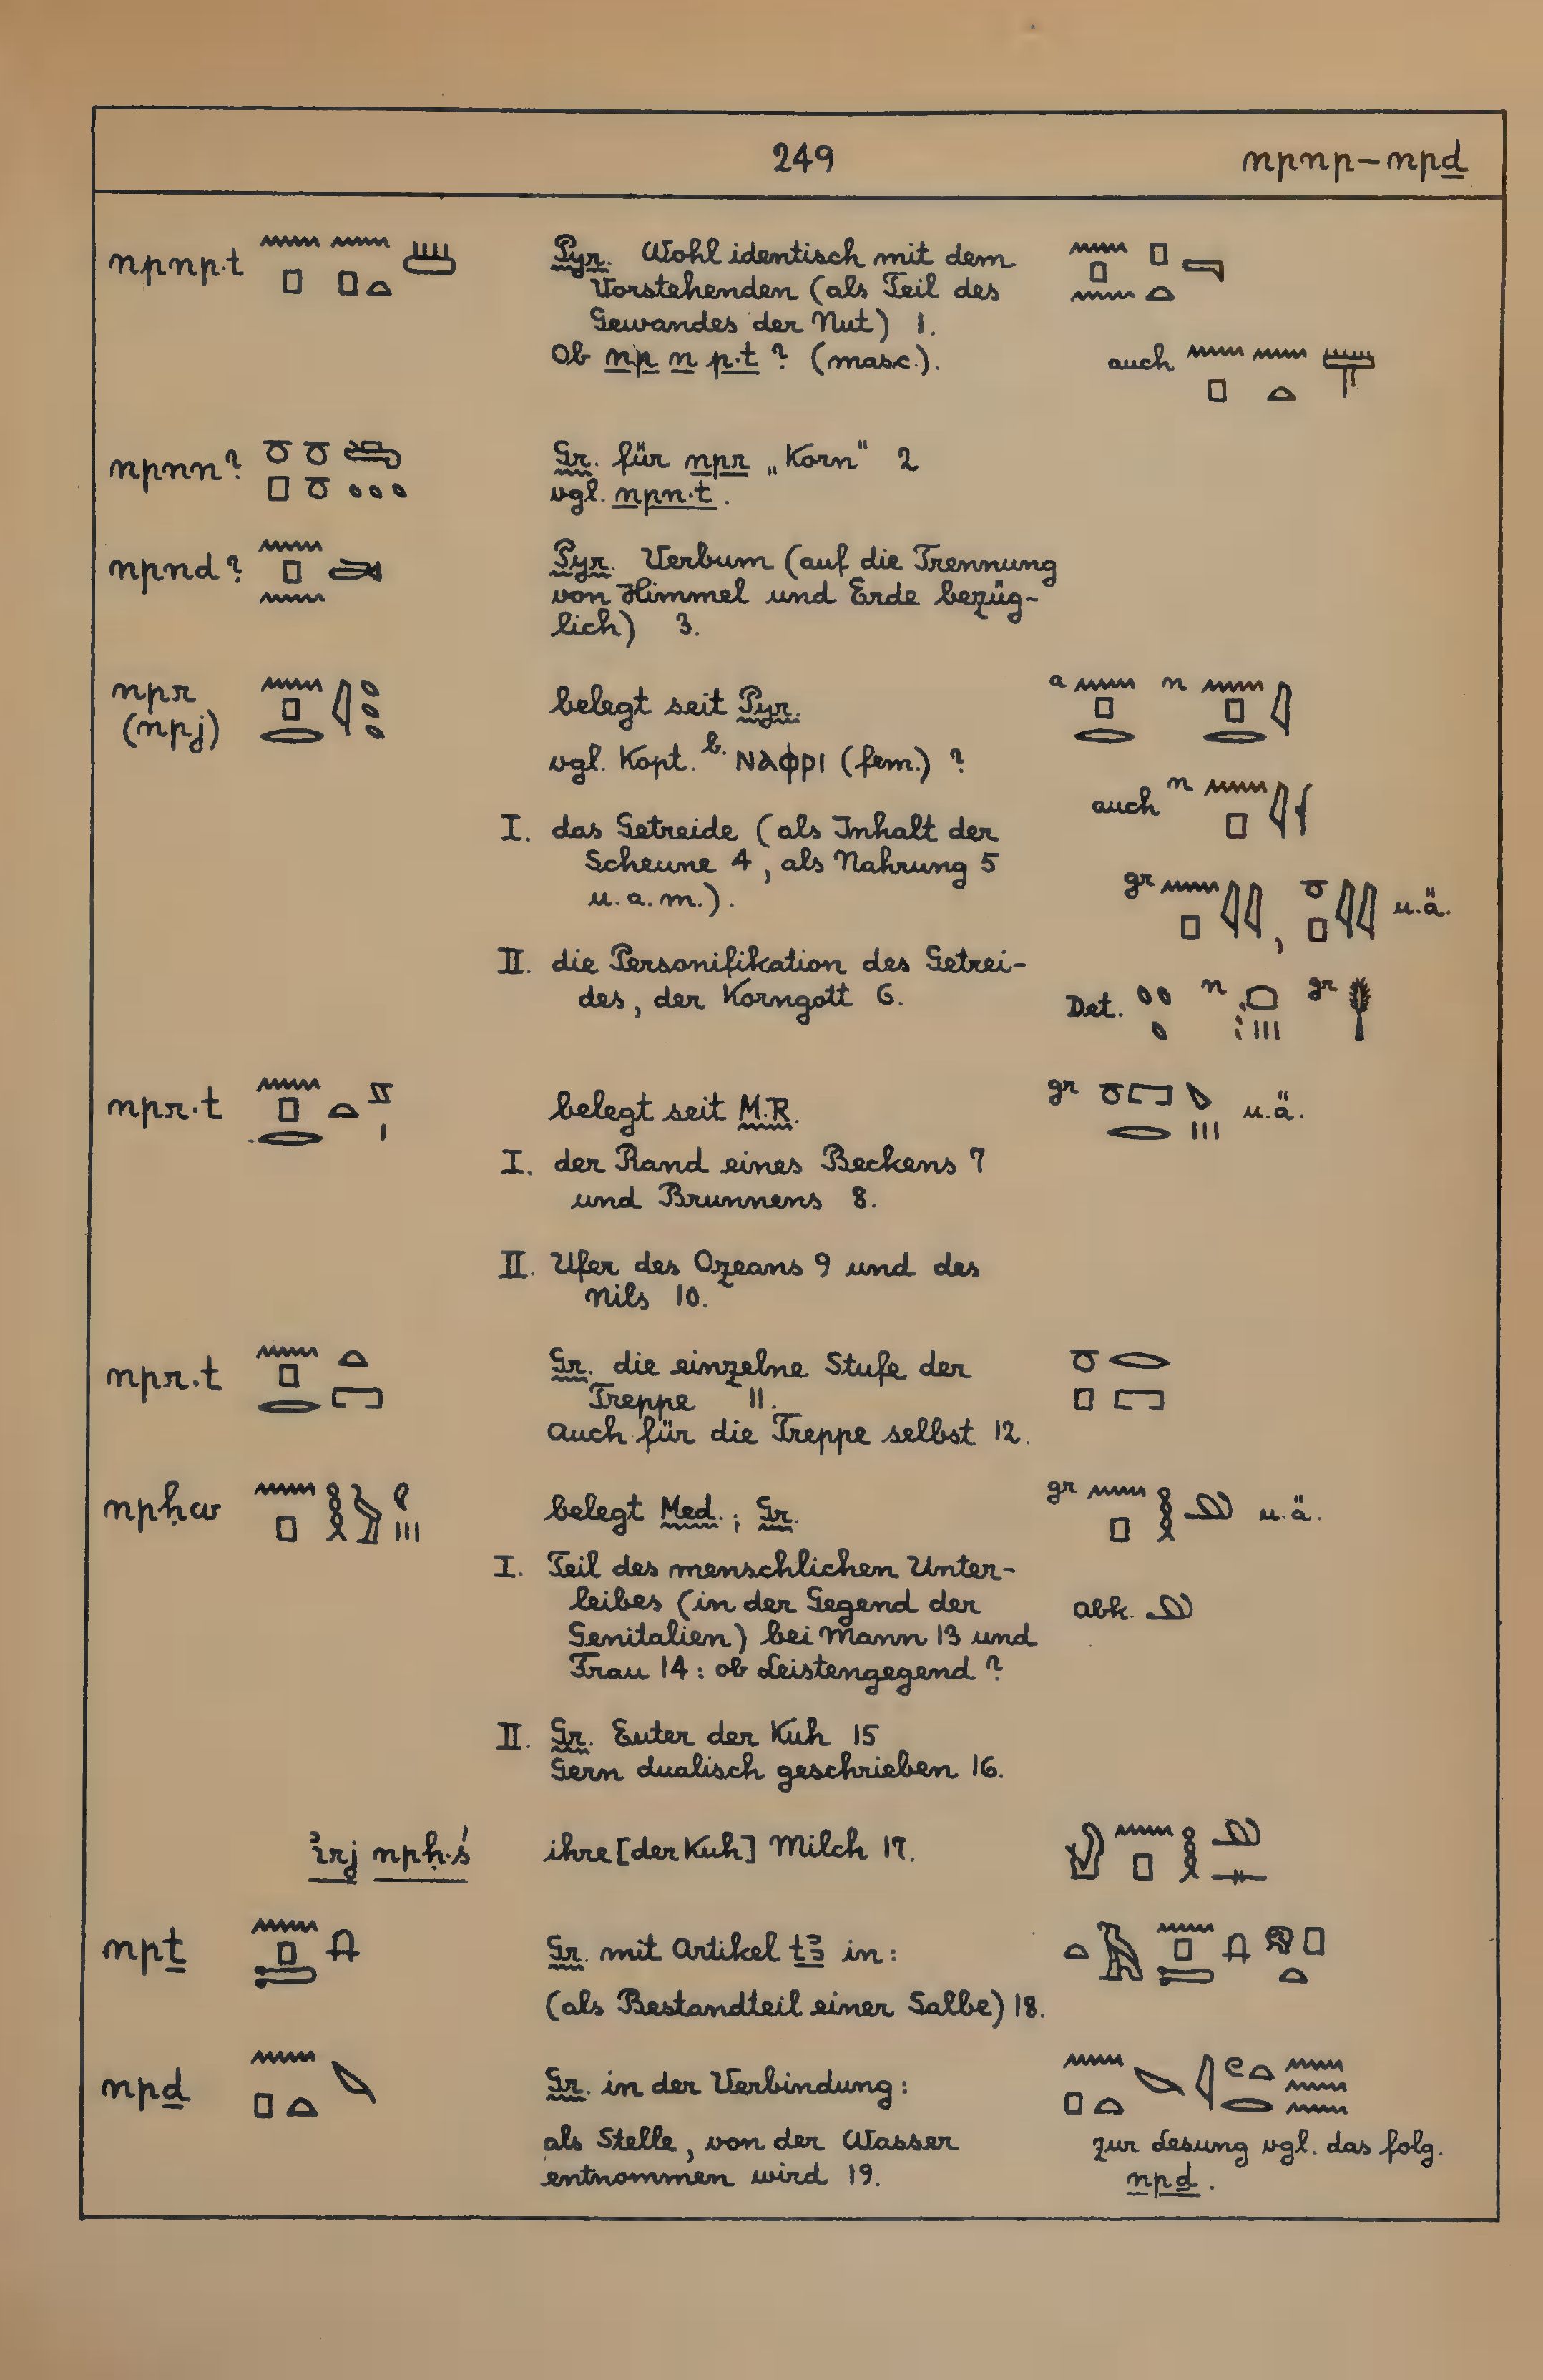 249
npnp–npḏ
npnp.t
Pyr. Wohl identisch mit dem
Vorstehenden (als Teil des
Gewandes der Nut) 1.
Ob np n p.t? (masc.).
auch
npnn?
Gr. für npr „Korn" 2
vgl. npn.t.
npnd?
Pyr. Verbum (auf die Trennung
von Himmel und Erde bezüg-
lich) 3.
npr
(npj)
belegt seit Pyr.
vgl. Kopt. b. ⲛⲁⲫⲣⲓ (fem.) ?
I. das Getreide (als Inhalt der
Scheune 4, als Nahrung 5
u.a.m.).
II. die Personifikation des Getrei-
des, der Korngott 6.
a n
auch n
gr , u.ä.
Det. n gr
npr.t
belegt seit M.R.
I. der Rand eines Beckens 7
und Brunnens 8.
II. Ufer des Ozeans 9 und des
Nils 10.
gr u.ä.
npr.t
Gr. die einzelne Stufe der
Treppe 11.
Auch für die Treppe selbst 12.
npḥw
belegt Med.; Gr.
I. Teil des menschlichen Unter-
leibes (in der Gegend der
Genitalien) bei Mann 13 und
Frau 14: ob Leistengegend?
II. Gr. Euter der Kuh 15
Gern dualisch geschrieben 16.
gr u.ä.
abk.
ꞽrj npḥ.ś
ihre [der Kuh] Milch 17.
npṯ
Gr. mit Artikel tꜣ in:
(als Bestandteil einer Salbe) 18.
npḏ
Gr. in der Verbindung:
als Stelle, von der Wasser
entnommen wird 19.
zur Lesung vgl. das folg.
npḏ.